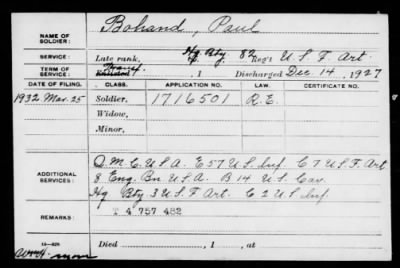 NAME OF SOLDIER: Bohand, Paul
SERVICE: Late rank, Hq. Bty. 82 Reg't U.S.F. Art.
TERM OF SERVICE: Enlisted , 1 Discharged Dec. 14, 1927
DATE OF FILING. CLASS. APPLICATION NO. LAW. CERTIFICATE NO.
1932 Mar. 25 Soldier, 1716501 R.E.
Widow,
Minor,
ADDITIONAL SERVICES: Q.M.C. U.S.A. E 57 U.S. Inf. C 7 U.S.F. Art
8 Eng. Bn U.S.A. B 14 U.S. Cav.
Hq Bty. 3 U.S.F. Art. C 2 U.S. Inf.
REMARKS: T 4 757 482
Died , 1 , at